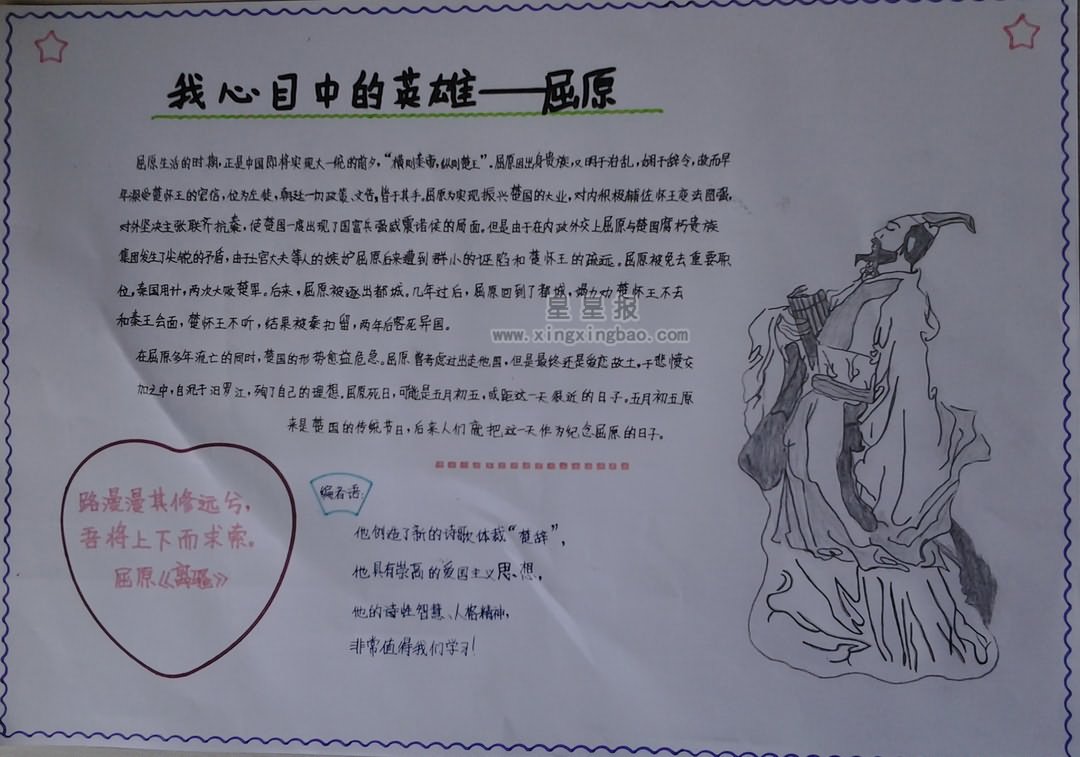 我心目中的英雄——屈原
屈原生活的时期,正是中国即将实现大一统的前夕,“横则秦帝,纵则楚王”.屈原因出身贵族,又明于治乱,娴于辞令,故而早
年深受楚怀王的宠信,位为左徒,朝廷一切政策、文告,皆于其手。屈原为实现振兴楚国的大业,对内积极辅佐怀王变法图强,
对外坚决主张联齐抗秦,使楚国一度出现了国富兵强威震诸侯的局面。但是由于在内政外交上屈原与楚国腐朽贵族
集团发生了尖锐的矛盾,由于上官大夫等人的嫉妒屈原后来遭到群小的诬陷和楚怀王的疏远。屈原被免去重要职
位,秦国用计,两次大败楚军。后来,屈原被逐出都城。几年过后,屈原回到了都城,竭力劝楚怀王不去
和秦王会面,楚怀王不听,结果被秦扣留,两年后客死异国。
在屈原多年流亡的同时,楚国的形势愈益危急。屈原曾考虑过出走他国,但是最终还是留恋故土,于悲愤交
加之中,自沉于汨罗江,殉了自己的理想。屈原死日,可能是五月初五,或距这一天很近的日子。五月初五原
来是楚国的传统节日,后来人们就把这一天作为纪念屈原的日子。
星星报
www.xingxingbao.com
路漫漫其修远兮,
吾将上下而求索。
屈原《离骚》
编者语:
他创造了新的诗歌体裁“楚辞”,
他具有崇高的爱国主义思想,
他的诗性智慧、人格精神,
非常值得我们学习!